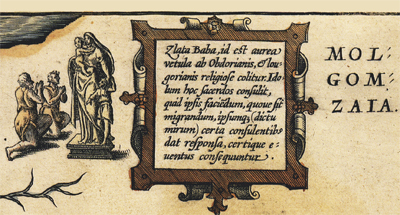 Zlata Baba, id est aurea
vetula ab Obdorianis, & Iou-
gorianis religiose colitur. Ido-
lum hoc sacerdos consulit,
quid ipsis faciēdum, quove sit
migrandum, ipsumq; (dictu
mirum) certa consulentib⁹
dat responsa, certique e-
ventus consequuntur.
MOL-
GOM-
ZAIA.